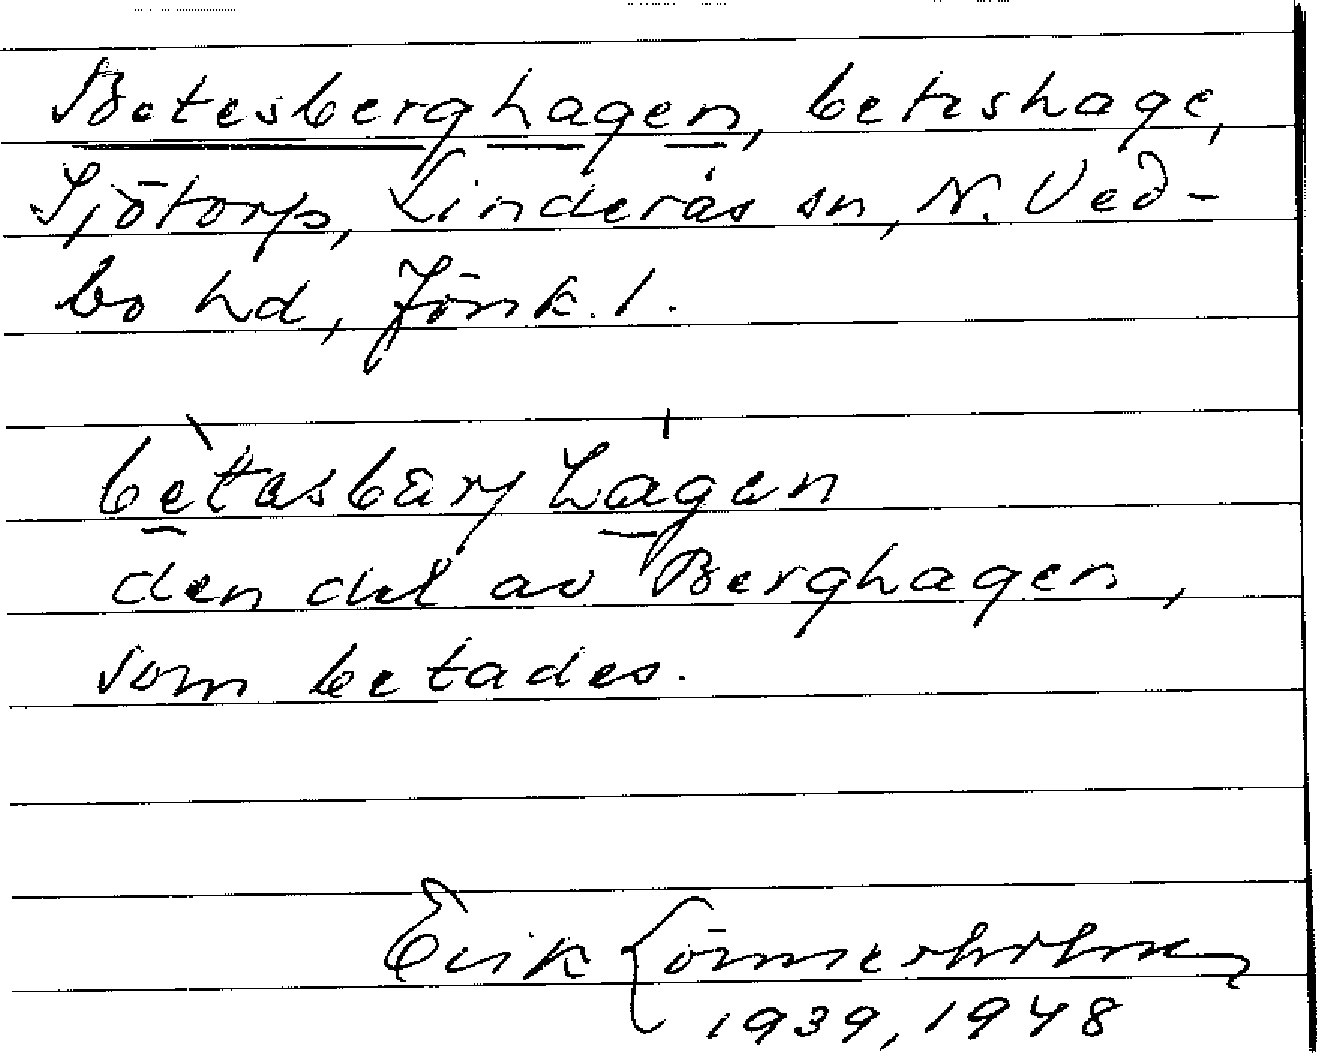 Betesberghagen, beteshage,
Sjötorp, Linderås sn, N. Ved-
bo hd, Jönk. l.
betasbärj hagan
den del av Berghagen,
som betades.
Erik Lönnerholm
1939, 1948